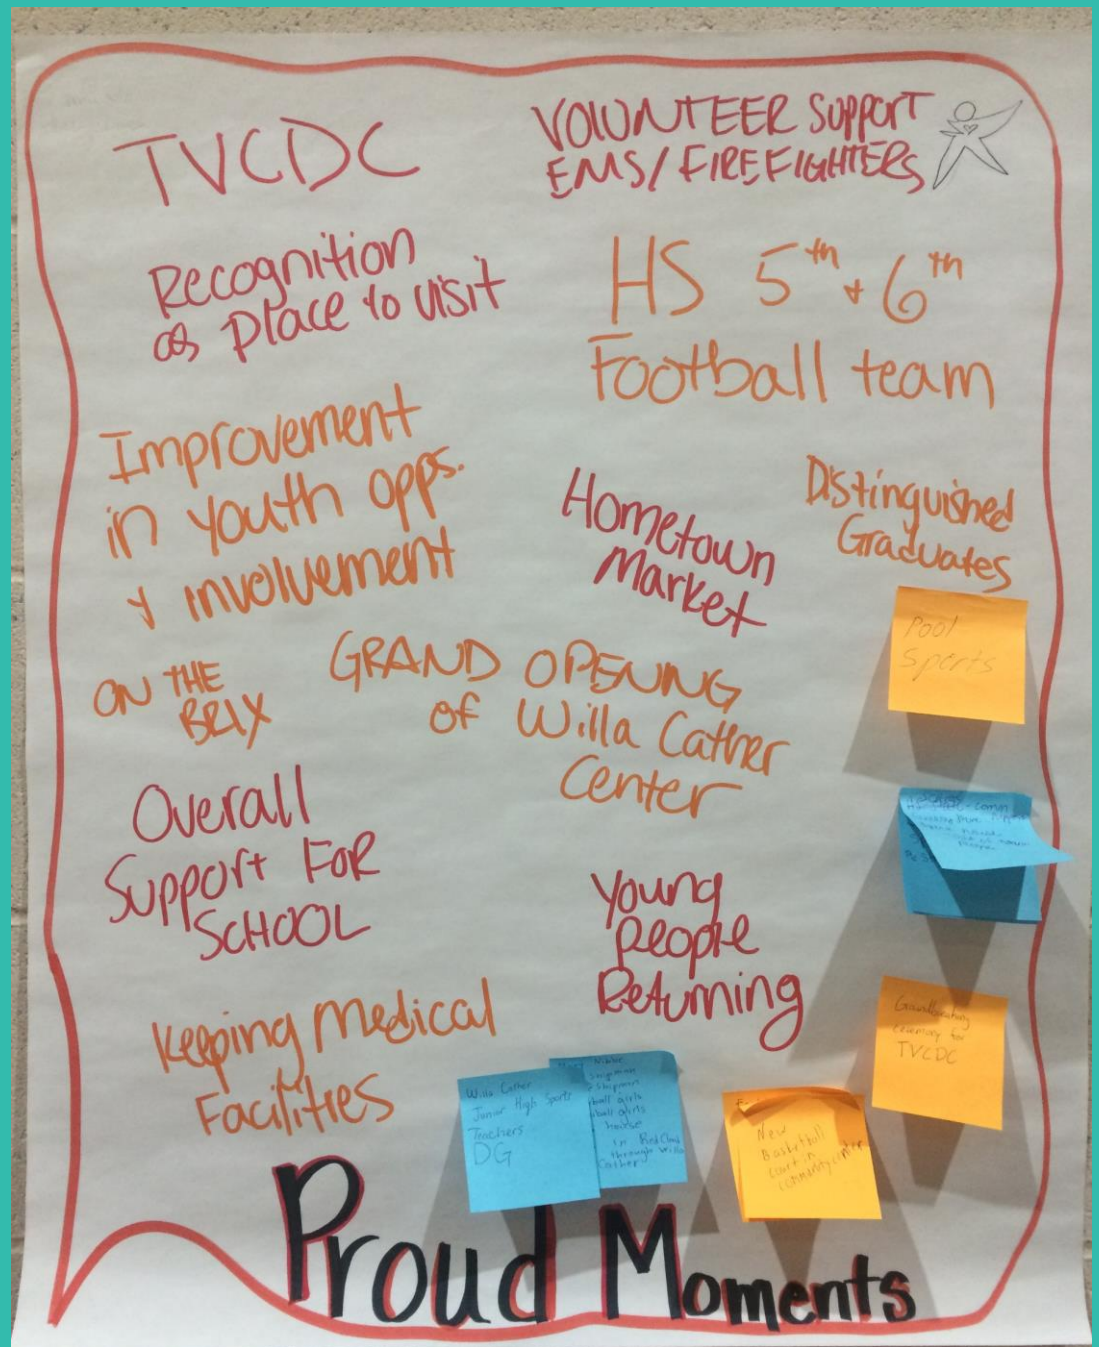 TVCDC
VOLUNTEER SUPPORT
EMS/FIREFIGHTERS
Recognition
as place to visit
HS 5th + 6th
Football team
Improvement
in youth opps.
& involvement
Hometown
Market
Distinguished
Graduates
Pool
Sports
ON THE
BRIX
GRAND OPENING
of Willa Cather
Center
Overall
Support FOR
SCHOOL
Young
People
Returning
Keeping Medical
Facilities
Groundbreaking
ceremony for
TVCDC
Willa Cather
Junior High Sports
Teachers
DG
ball girls
ball girls
house
in Red Cloud
through Willa
Cather
New
Basketball
court in
community center
Proud Moments